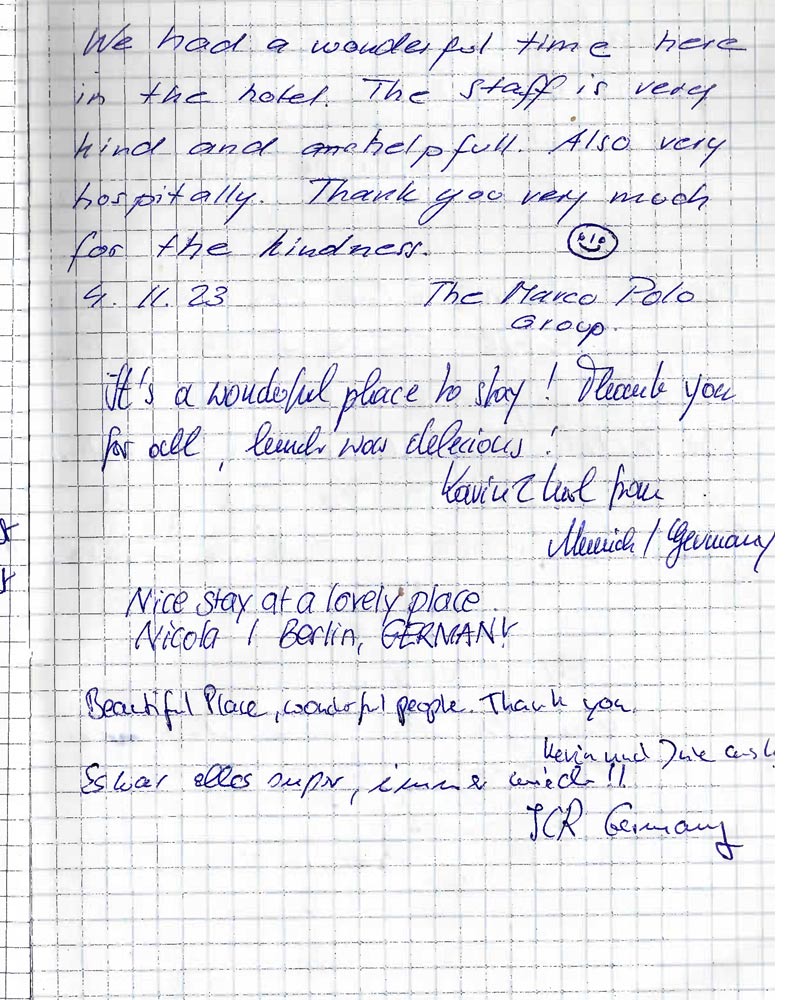 We had a wonderful time here
in the hotel. The staff is very
kind and helpfull. Also very
hospitally. Thank you very much
for the kindness.
4. 11. 23 The Marco Polo
Group.
It's a wonderful place to stay! Thank you
for all, lunch was delicious!
from
Munich / Germany
Nice stay at a lovely place
Nicola / Berlin, GERMANY
Beautiful Place, wonderful people. Thank you.
Kevin und
Es war alles super, immer wieder!!
JCR Germany